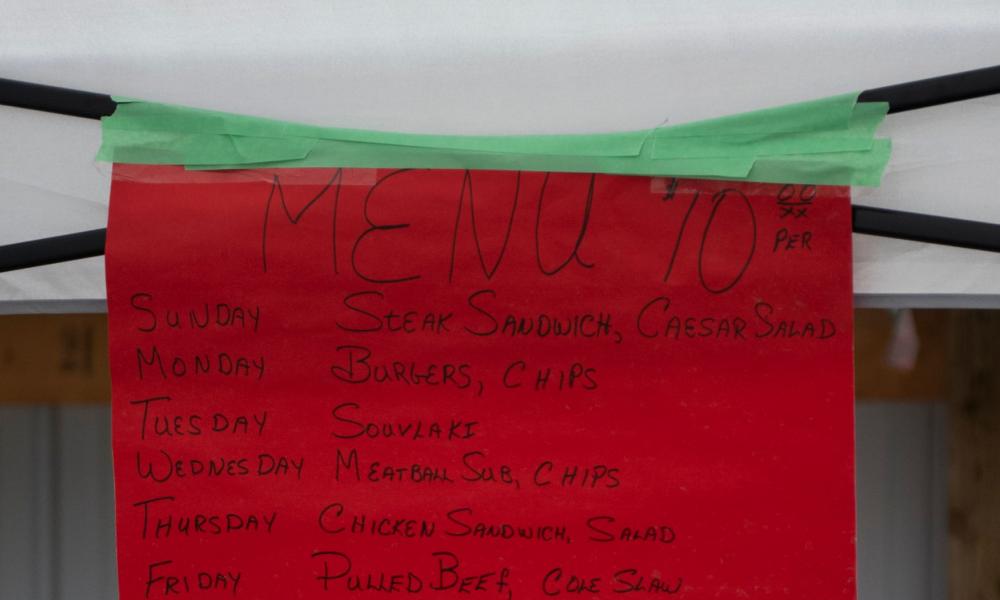 MENU $10 00/xx
PER
SUNDAY STEAK SANDWICH, CAESAR SALAD
MONDAY BURGERS, CHIPS
TUESDAY SOUVLAKI
WEDNESDAY MEATBALL SUB, CHIPS
THURSDAY CHICKEN SANDWICH, SALAD
FRIDAY PULLED BEEF, COLE SLAW